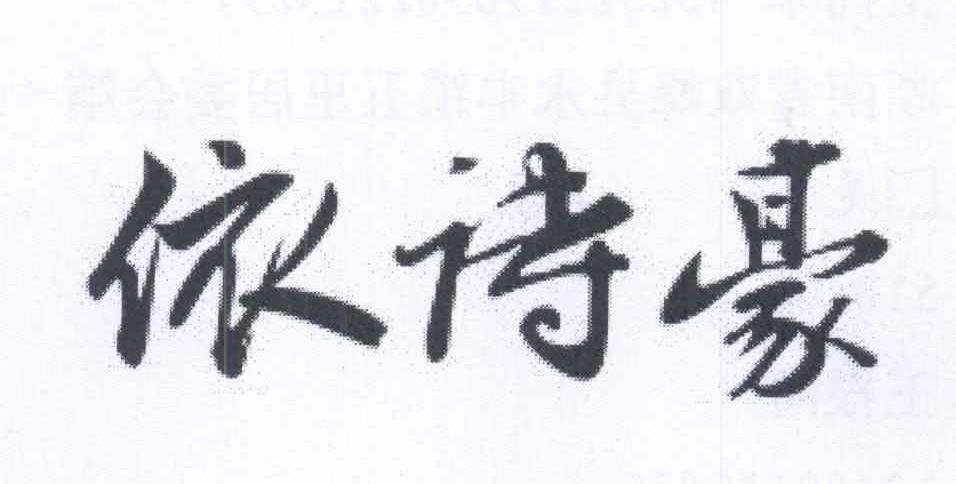 依诗豪